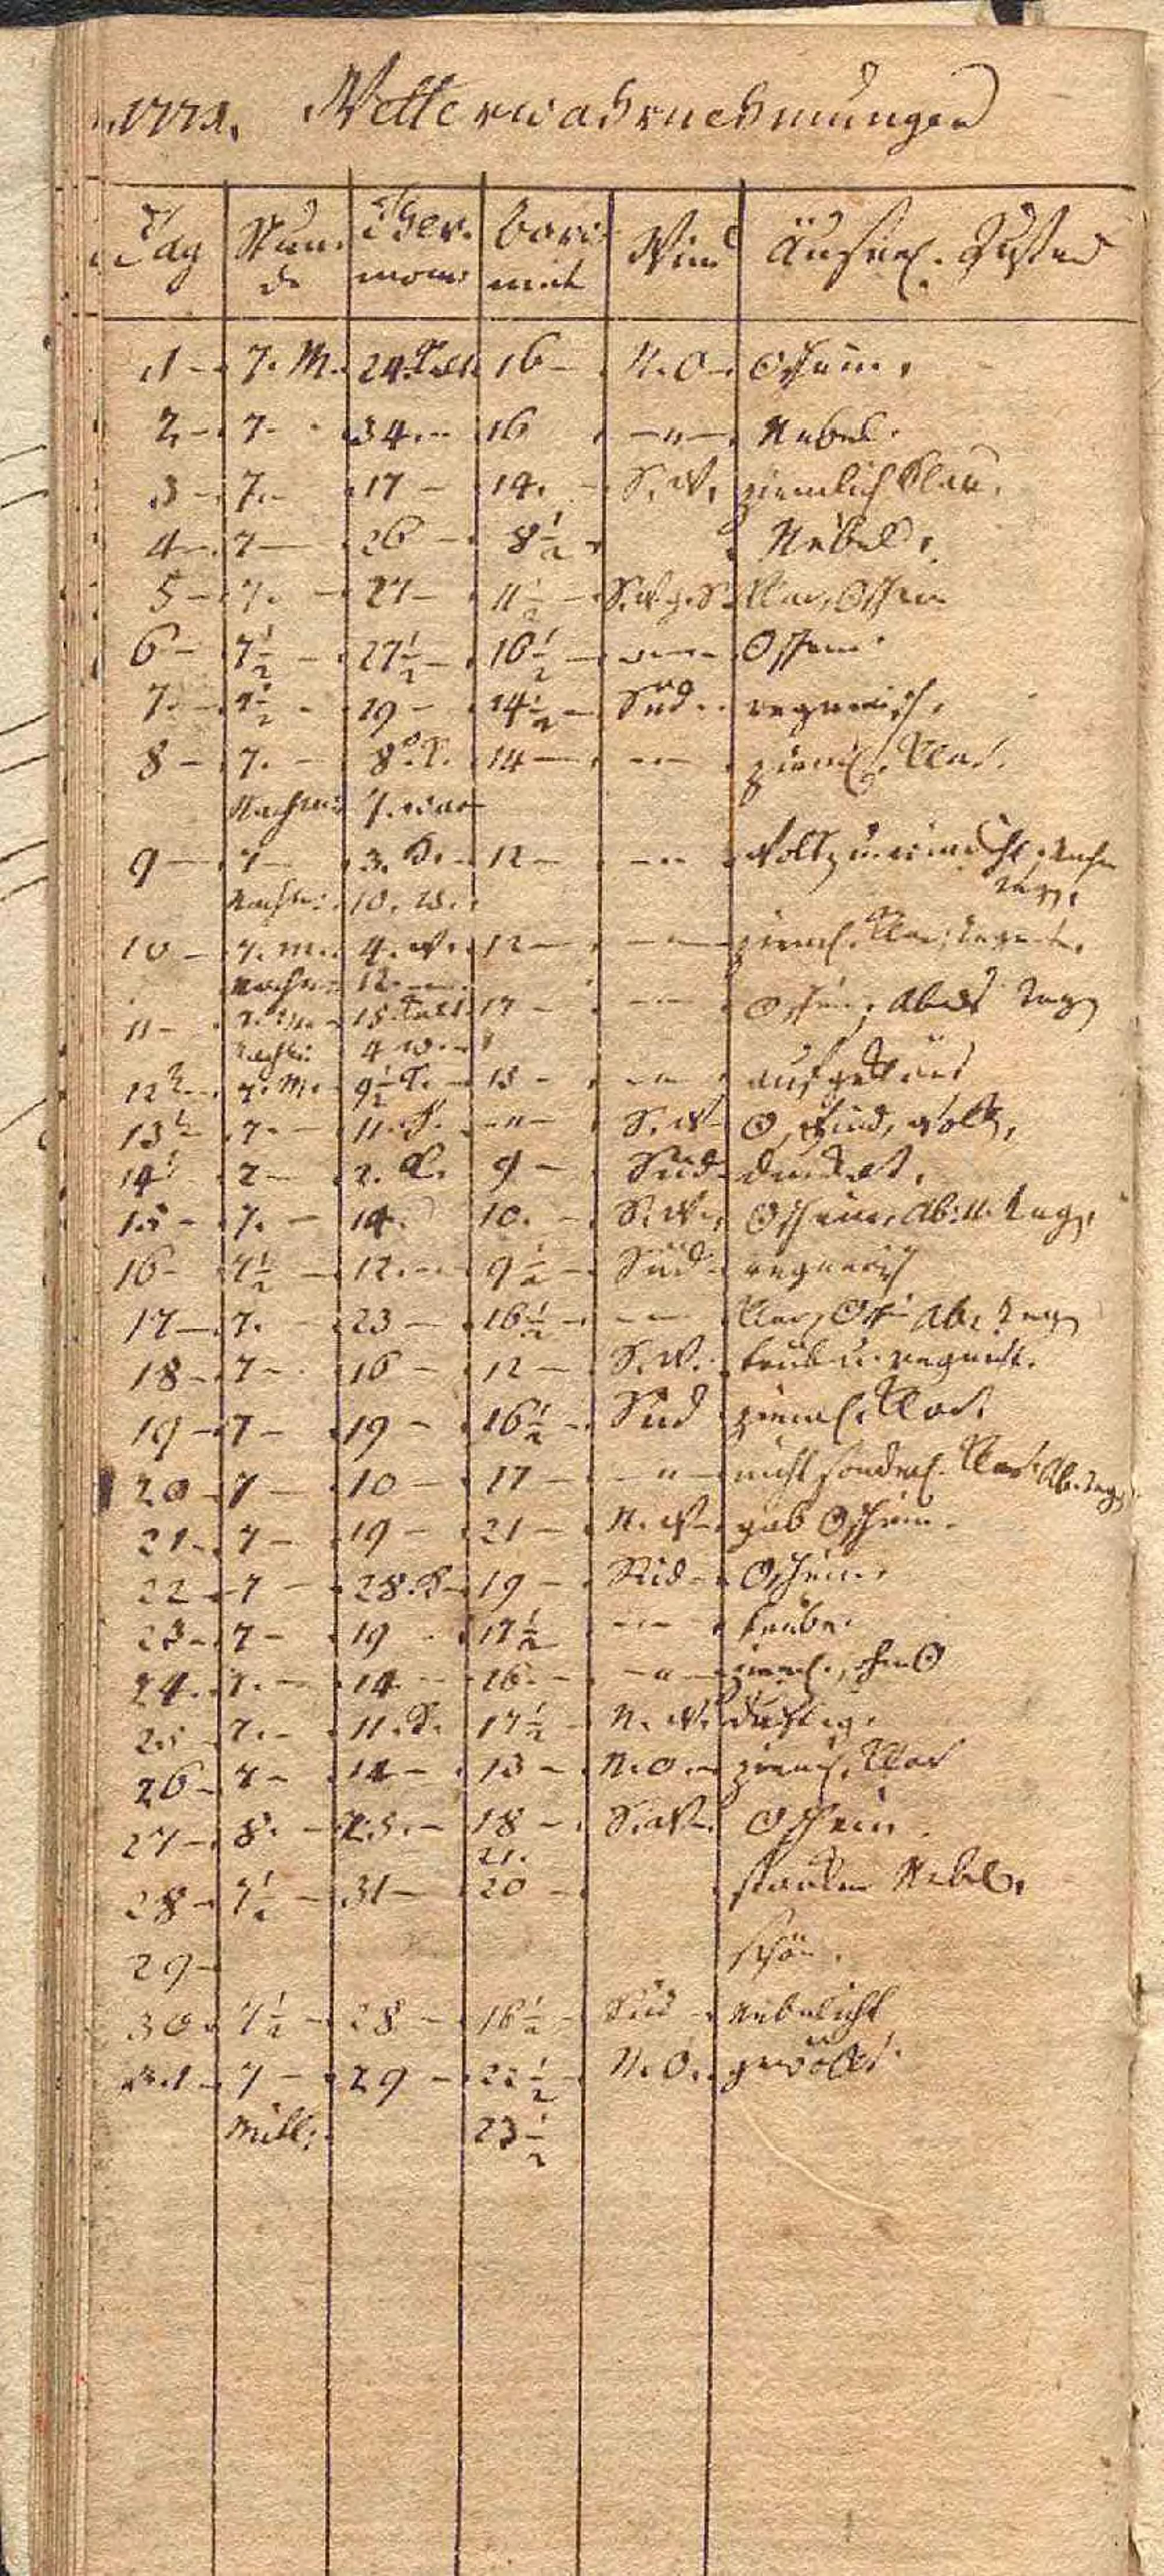 Wetterwahrnehmungen
Tag Stunde Thermom: Barometr Wind Äuserl. Zustand
1 – 7. M. 24. Kalt 16 – N. O – ☉schein.
2 – 7. 34. – 16 – " – Nebel.
3 – 7. – 17 – 14. – S. W. ziemlich klar.
4 – 7 – 26 – 8 1/2 Nebel.
5 – 7. – 27 – 11 1/2 – S.W.z.S. klar, ☉schein
6 – 7 1/2 – 27 1/2 – 16 1/2 – – " – ☉schein
7. – 7 1/2 – 29 – 14 1/2 – Süd – regnerisch.
8 – 7. – 8. K. 14 – – " – zieml. klar.
Nachm: 7. war
9 – 7 – 3. K. – 12 – – " –
Nachm: 10. W.
10 – 7. M. 4. W. 12 – – " – zieml. klar,
Nachm: 12. –
11 – 7. M – 15. Kalt 17 – – " – ☉schein, Abends Reg
Nachm: 4 W. –
12 – 7. M. 9 1/2 K. – 15 – – " – aufgeklärt
13 – 7. – 11. K. – " – S. W – ☉, Wind, Wolk,
14 – 7 – 2. K. 9 – Süd – dunkel.
15 – 7. – 14. 10. – S. W. ☉schein, Ab: u. Reg.
16 – 7 1/2 – 12. – 9 1/2 – Süd – regnerisch
17 – 7. – 23 – 16 1/2 – – " – klar, ☉sch: Ab: Reg
18 – 7 – 16 – 12 – S. W. – trüb u. regnicht.
19 – 7 – 19 – 16 1/2 – Süd zieml. klar.
20 – 7 – 10 – 17 – – " – nicht sonderl. klar Ab. Reg.
21 – 7 – 19 – 21 – N. W – gab ☉schein.
22 – 7 – 28. K – 19 – Süd – ☉schein.
23 – 7 – 19 17 1/2 – " – trübe.
24. 7. – 14 – 16. – – " – zieml., ohn ☉
25 7. – 11. K. 17 1/2 – N. W. duftig.
26 – 7 – 14 – 13 – N. O. – zieml. klar
27 – 8. – 25. – 18 – S. W. ☉schein.
21.
28 – 7 1/2 – 31 – 20 – starken Nebel.
29 – schön.
30 7 1/2 – 28 – 16 1/2 – Süd – nebelicht
31 – 7 – 29 – 22 1/2 – N. O. – gewölkt.
Mitt: 23 1/2